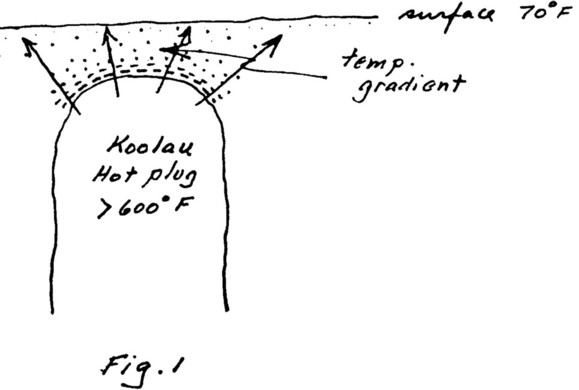 surface 70°F
temp.
gradient
Koolau
Hot plug
>600°F
Fig. 1